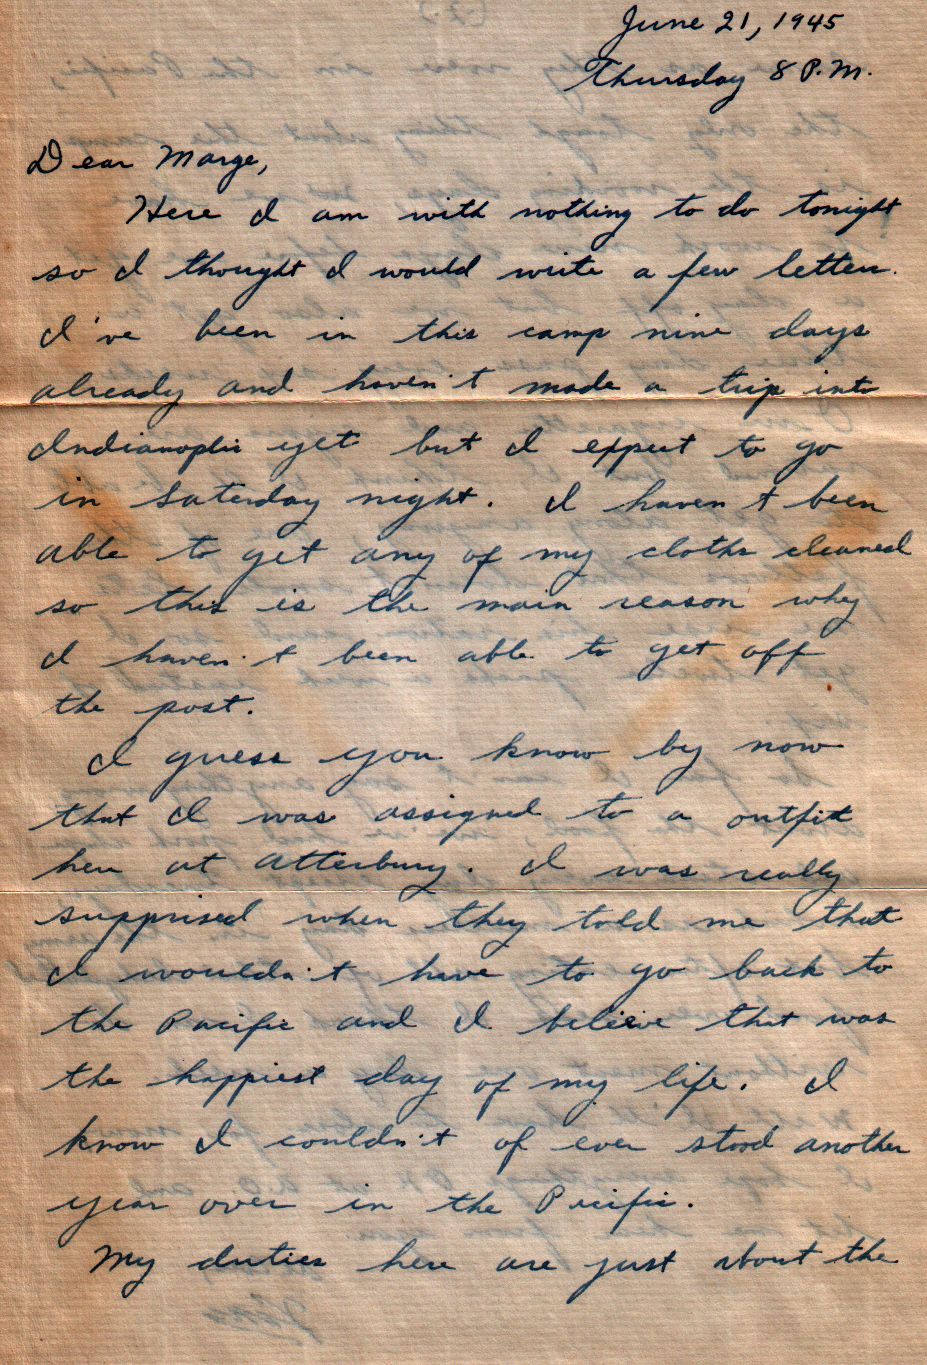 June 21, 1945
Thursday 8 P.M.
Dear Marge,
Here I am with nothing to do tonight
so I thought I would write a few letters.
I've been in this camp nine days
already and haven't made a trip into
Indianoplis yet but I expect to go
in Saterday night. I haven't been
able to get any of my cloths cleaned
so this is the main reason why
I haven't been able to get off
the post.
I guess you know by now
that I was assigned to a outfit
here at Atterbury. I was really
supprised when they told me that
I wouldn't have to go back to
the Pacific and I believe that was
the happiest day of my life. I
know I couldn't of ever stood another
year over in the Pacific.
My duties here are just about the